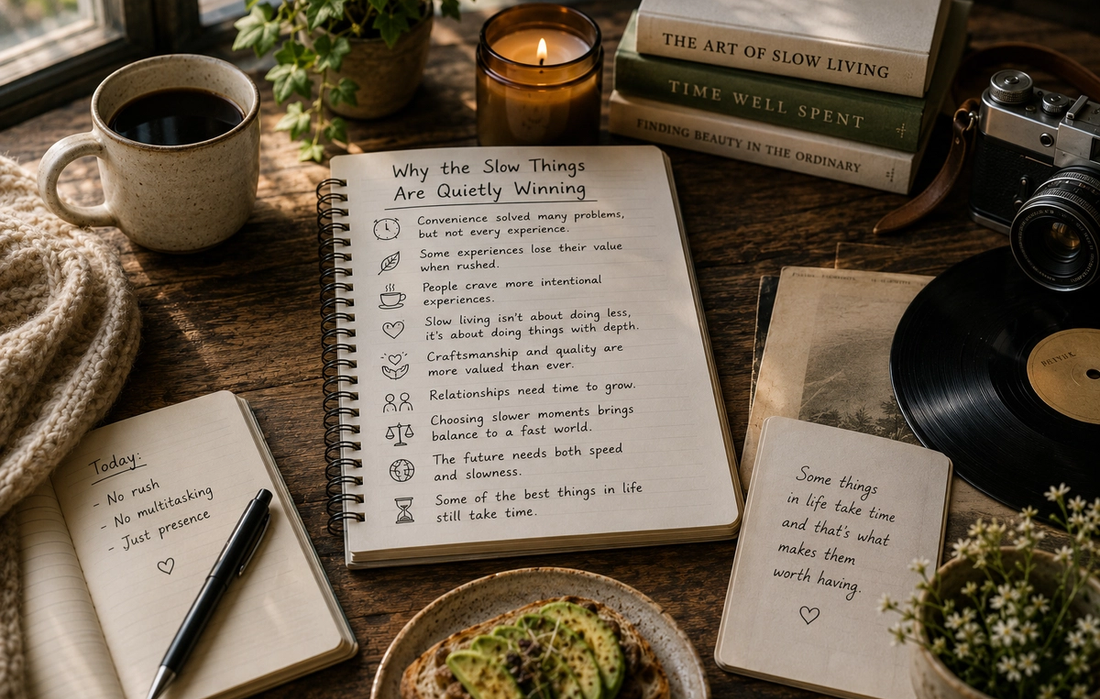 THE ART OF SLOW LIVING
TIME WELL SPENT
FINDING BEAUTY IN THE ORDINARY
Why the Slow Things
Are Quietly Winning
Convenience solved many problems,
but not every experience.
Some experiences lose their value
when rushed.
People crave more intentional
experiences.
Slow living isn't about doing less,
it's about doing things with depth.
Craftsmanship and quality are
more valued than ever.
Relationships need time to grow.
Choosing slower moments brings
balance to a fast world.
The future needs both speed
and slowness.
Some of the best things in life
still take time.
Today:
- No rush
- No multitasking
- Just presence
Some things
in life take time
and that's what
makes them
worth having.